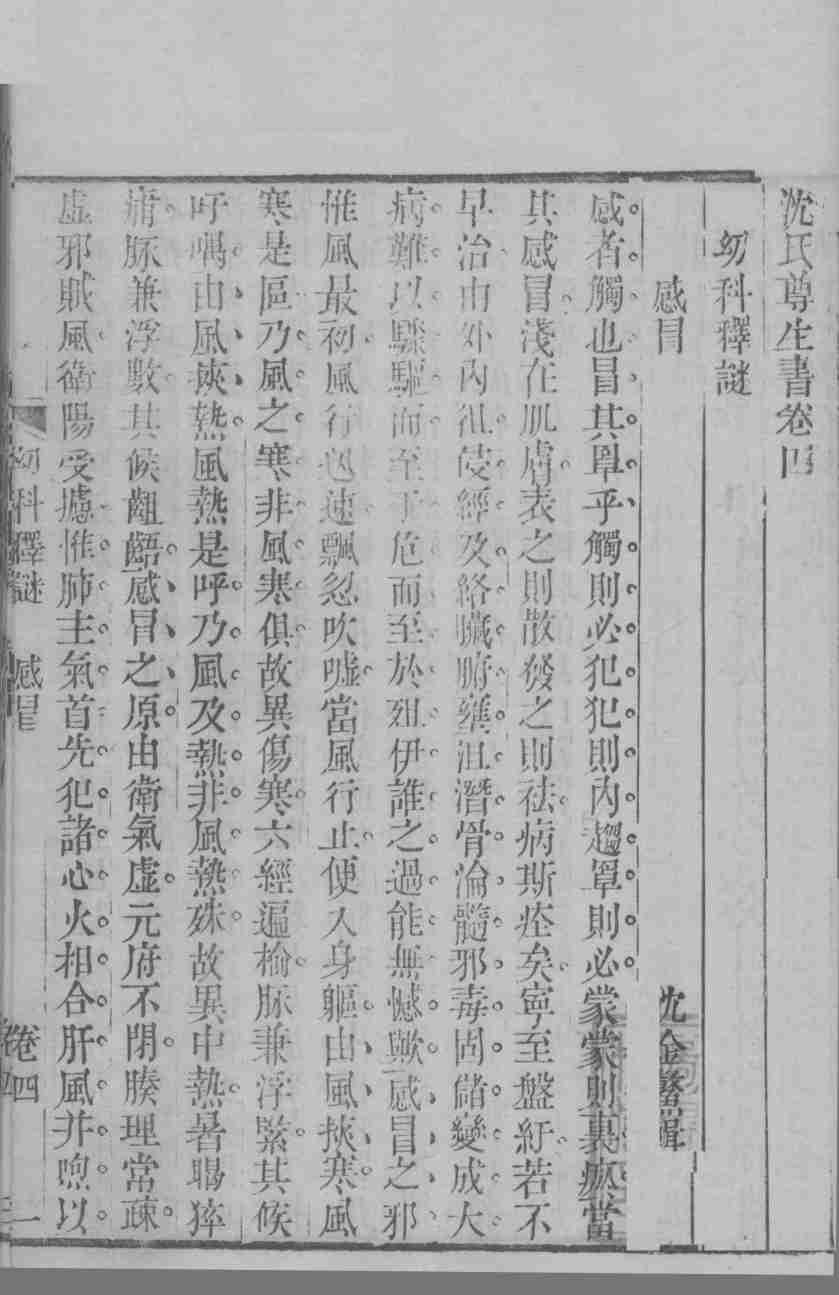 沈氏尊生書卷四
幼科釋謎
沈金鰲輯
感冒
感者。觸也。冒其罩乎。觸則必犯。犯則內趨。罩則必蒙。蒙則裏痧。當
其感冒。淺在肌膚。表之則散。發之則祛。病斯痊矣。寧至盤紆。若不
早治。由外內徂。侵經及絡。臟腑壅沮。潛骨淪髓。邪毒固儲。變成大
病。難以驟驅。而至于危。而至於殂。伊誰之過。能無憾歟。感冒之邪。
惟風最初。風行迅速。飄忽吹噓。當風行止。便入身軀。由風挾寒。風
寒是區。乃風之寒。非風寒俱。故異傷寒。六經遍楡。脉兼浮緊。其候
吁喁。由風挾熱。風熱是呼。乃風及熱。非風熱殊。故異中熱。暑暍猝
痡。脉兼浮數。其候齟齬。感冒之原。由衛氣虛。元府不閉。腠理常疎。
虛邪賊風。衛陽受攄。惟肺主氣。首先犯諸。心火相合。肝風并喣。以
幼科釋謎 感冒 卷四 一